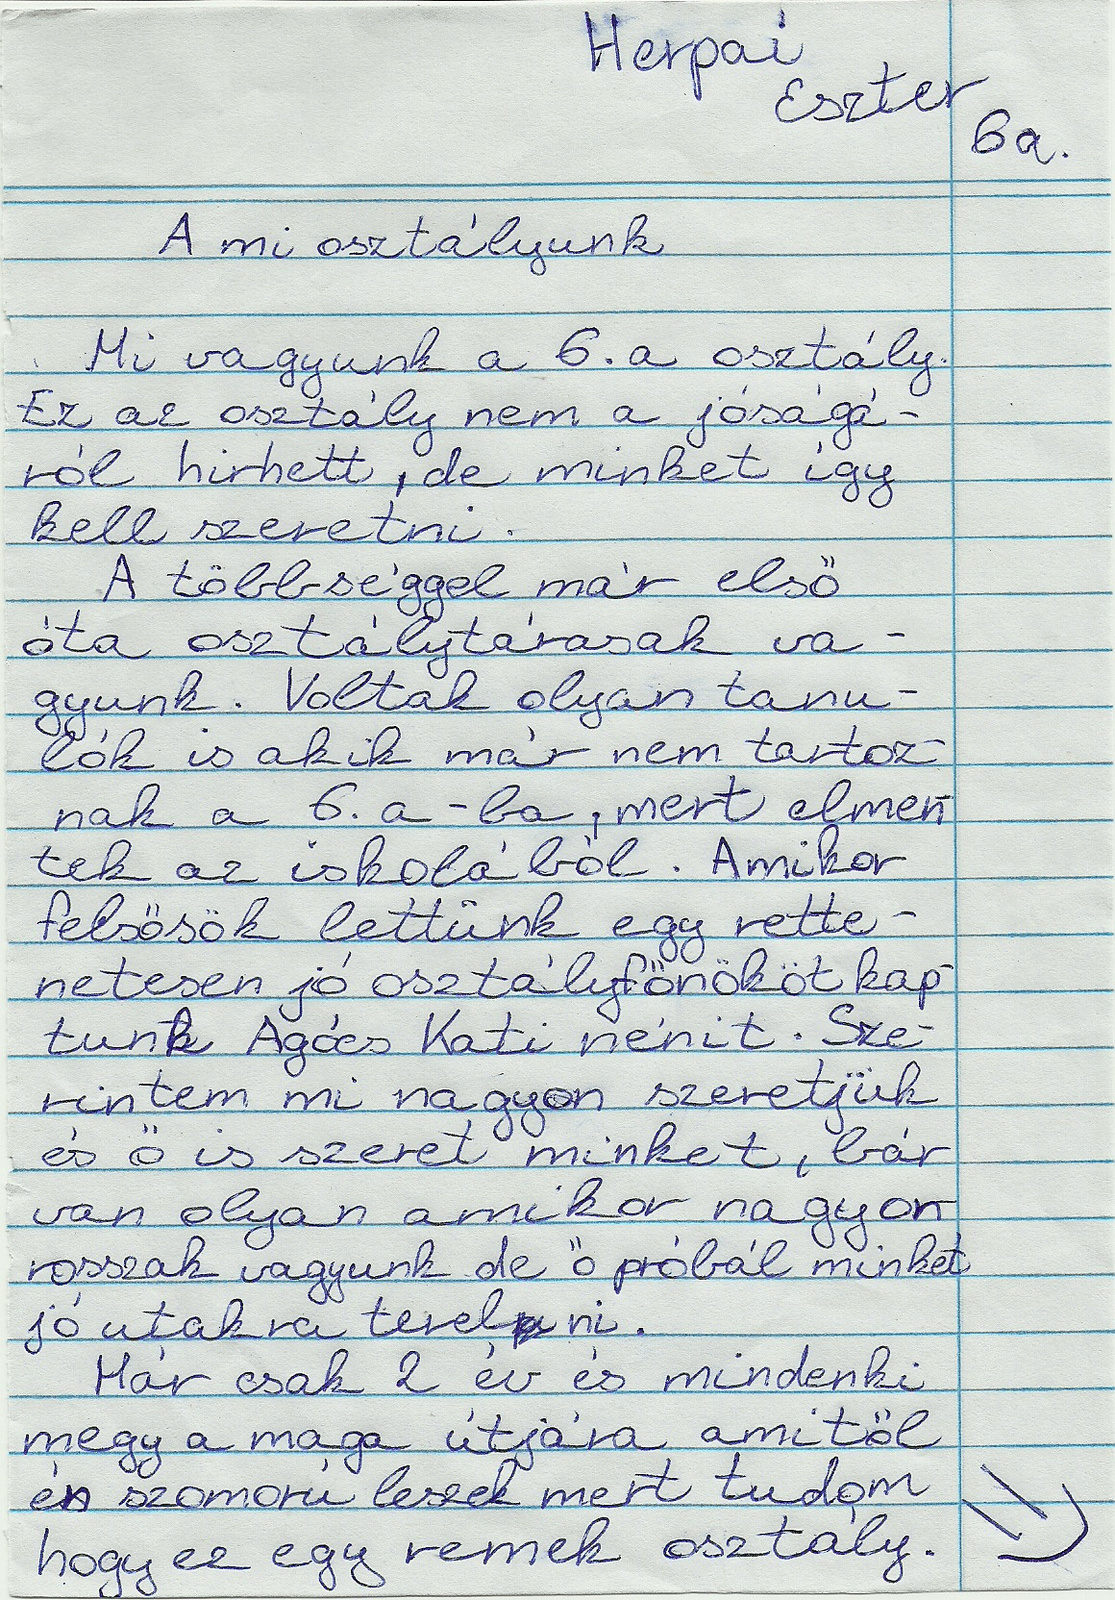 Herpai
Eszter
6a.
A mi osztályunk
Mi vagyunk a 6.a osztály.
Ez az osztály nem a jóságá-
ról hirhett, de minket így
kell szeretni.
A többséggel már első
óta osztálytárasak va-
gyunk. Voltak olyan tanu-
lók is akik már nem tartoz-
nak a 6. a-ba, mert elmen-
tek az iskolából. Amikor
felsősök lettünk egy rette-
netesen jó osztályfőnököt kap-
tunk Agócs Kati nénit. Sze-
rintem mi nagyon szeretjük
és ő is szeret minket, bár
van olyan amikor nagyon
rosszak vagyunk de ő próbál minket
jó utakra terelni.
Már csak 2 év és mindenki
megy a maga útjára amitől
én szomorú leszek mert tudom
hogy ez egy remek osztály.